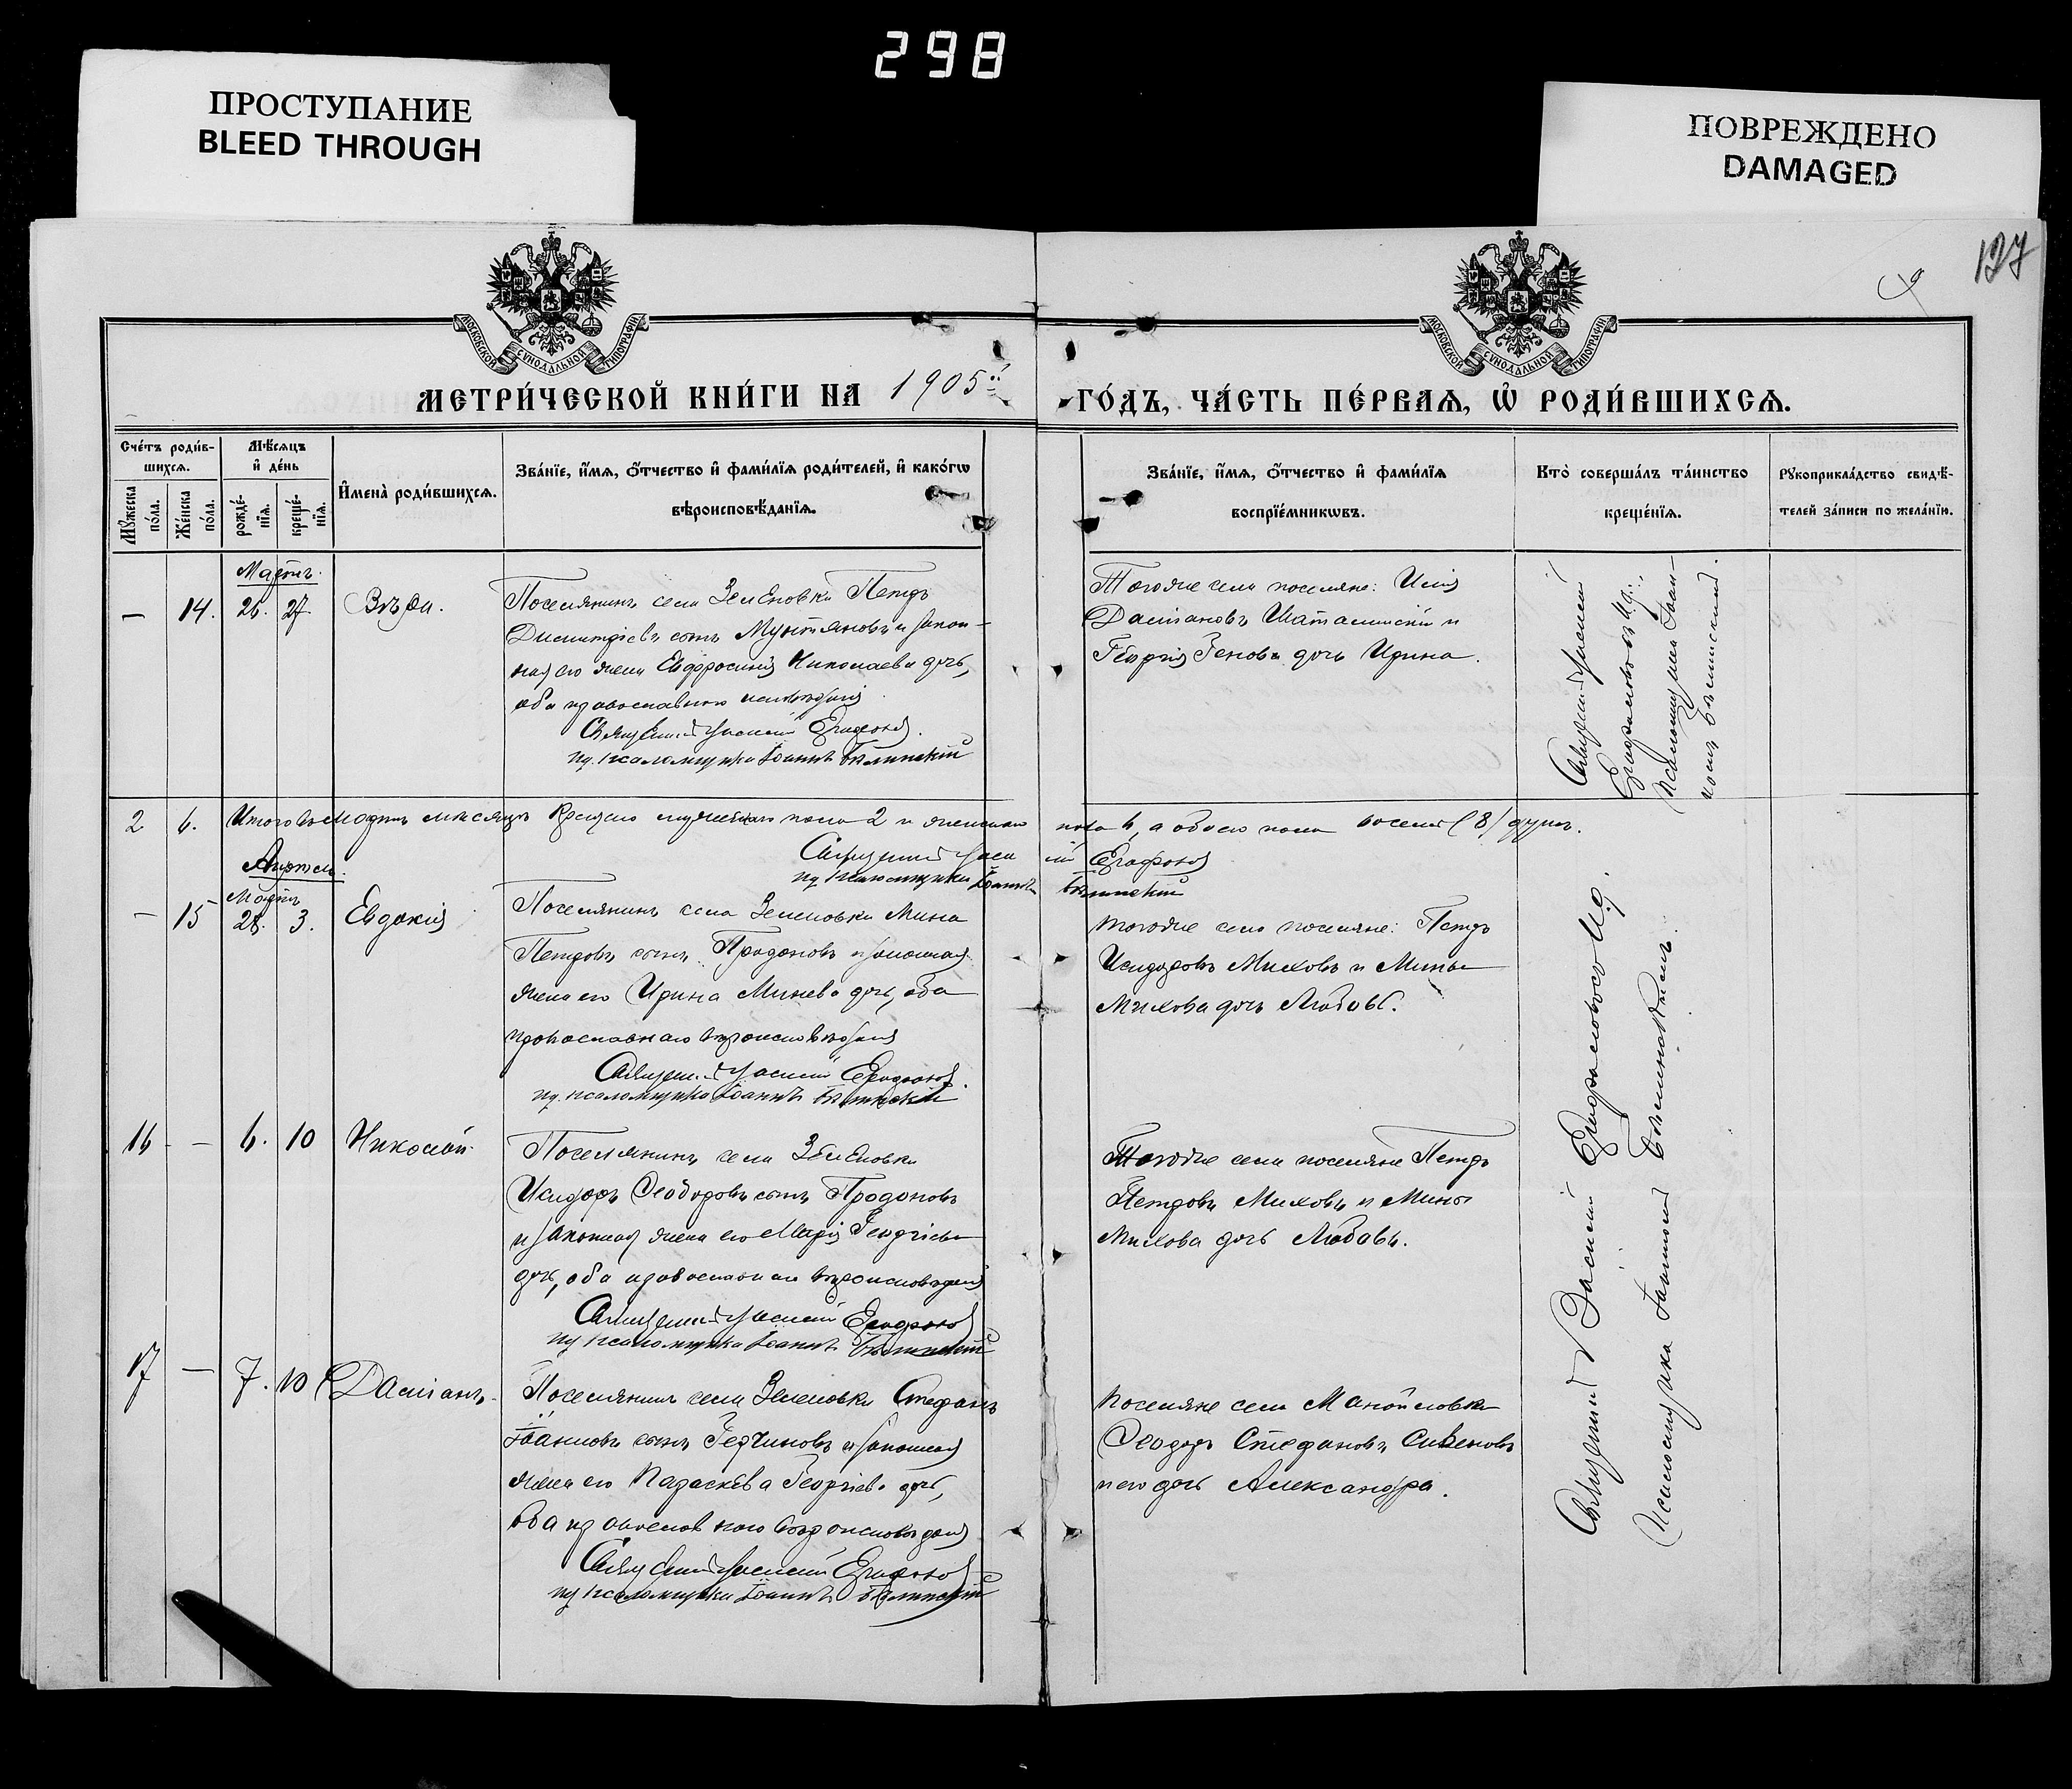 298
ПРОСТУПАНИЕ
BLEED THROUGH
ПОВРЕЖДЕНО
DAMAGED
127
9
МОСКОВСКОЙ СѴНОДАЛЬНОЙ ТИПОГРАФІИ
МОСКОВСКОЙ СѴНОДАЛЬНОЙ ТИПОГРАФІИ
МЕТРИ́ЧЕСКОЙ КНИ́ГИ НА 1905й
ГО́ДЪ, ЧА́СТЬ ПЕ́РВАѦ, Ѡ҆ РОДИ́ВШИХСѦ.
Сче́тъ роди́в-
шихсѧ.
Мꙋ́жеска по́ла.
Же́нска по́ла.
Мѣ́сѧцъ
и҆ де́нь
рожде́-
нїѧ.
креще́-
нїѧ.
И҆мена̀ роди́вшихсѧ.
Зва́нїе, и҆́мѧ, ѻ҆́тчество и҆ фами́лїѧ роди́телей, и҆ како́гѡ
вѣроисповѣ́данїѧ.
Зва́нїе, и҆́мѧ, ѻ҆́тчество и҆ фами́лїѧ
воспрїе́мникѡвъ.
Кто̀ соверша́лъ та́инство
креще́нїѧ.
Рꙋкоприкла́дство свидѣ́-
телей за́писи по жела́нїю.
Мартъ.
— 14. 26. 27. Вѣра.
Поселянинъ села Зеленовки Петръ
Димитріевъ сынъ Мунтяновъ и закон-
ная его жена Евфросинія Николаева дочь,
оба православнаго исповѣданія
Священникъ Василій
и. д. псаломщика Іоаннъ Бѣлинскій
Тогоже села поселяне: Илія
Даміановъ и
Георгія Генова дочь Ирина.
Священникъ Василій
псаломщика Іоан-
номъ Бѣлинскимъ.
2 6. Итого въ Мартѣ мѣсяцѣ крещено мужескаго пола 2 и женскаго пола 6, а обоего пола восемь (8) душъ.
Священникъ Василій
и. д. псаломщика Іоаннъ Бѣлинскій
Апрѣль.
Мартъ
— 15 28. 3. Евдокія
Поселянинъ села Зеленовки Мина
Петровъ сынъ Продановъ и законная
жена его Ирина Минева дочь, оба
православнаго вѣроисповѣданія
Священникъ Василій
и. д. псаломщика Іоаннъ Бѣлинскій
Тогоже села поселяне: Петръ
Исидоровъ Миховъ и Мины
Михова дочь Любовь.
16 — 6. 10 Николай.
Поселянинъ села Зеленовки
Исидоръ Ѳеодоровъ сынъ Продановъ
и законная жена его Марія Георгіева
дочь, оба православнаго вѣроисповѣданія
Священникъ Василій
и. д. псаломщика Іоаннъ Бѣлинскій
Тогоже села поселяне Петръ
Петровъ Миховъ и Мины
Михова дочь Любовь.
17 — 7. 10 Даміанъ.
Поселянинъ села Зеленовки Стефанъ
Іоанновъ сынъ и законная
жена его Параскева Георгіева дочь,
оба православнаго вѣроисповѣданія
Священникъ Василій
и. д. псаломщика Іоаннъ Бѣлинскій
Поселяне села Манойловки
Ѳеодоръ Стефановъ
и его дочь Александра.
Священникъ Василій
псаломщика Іоанномъ Бѣлинскимъ.